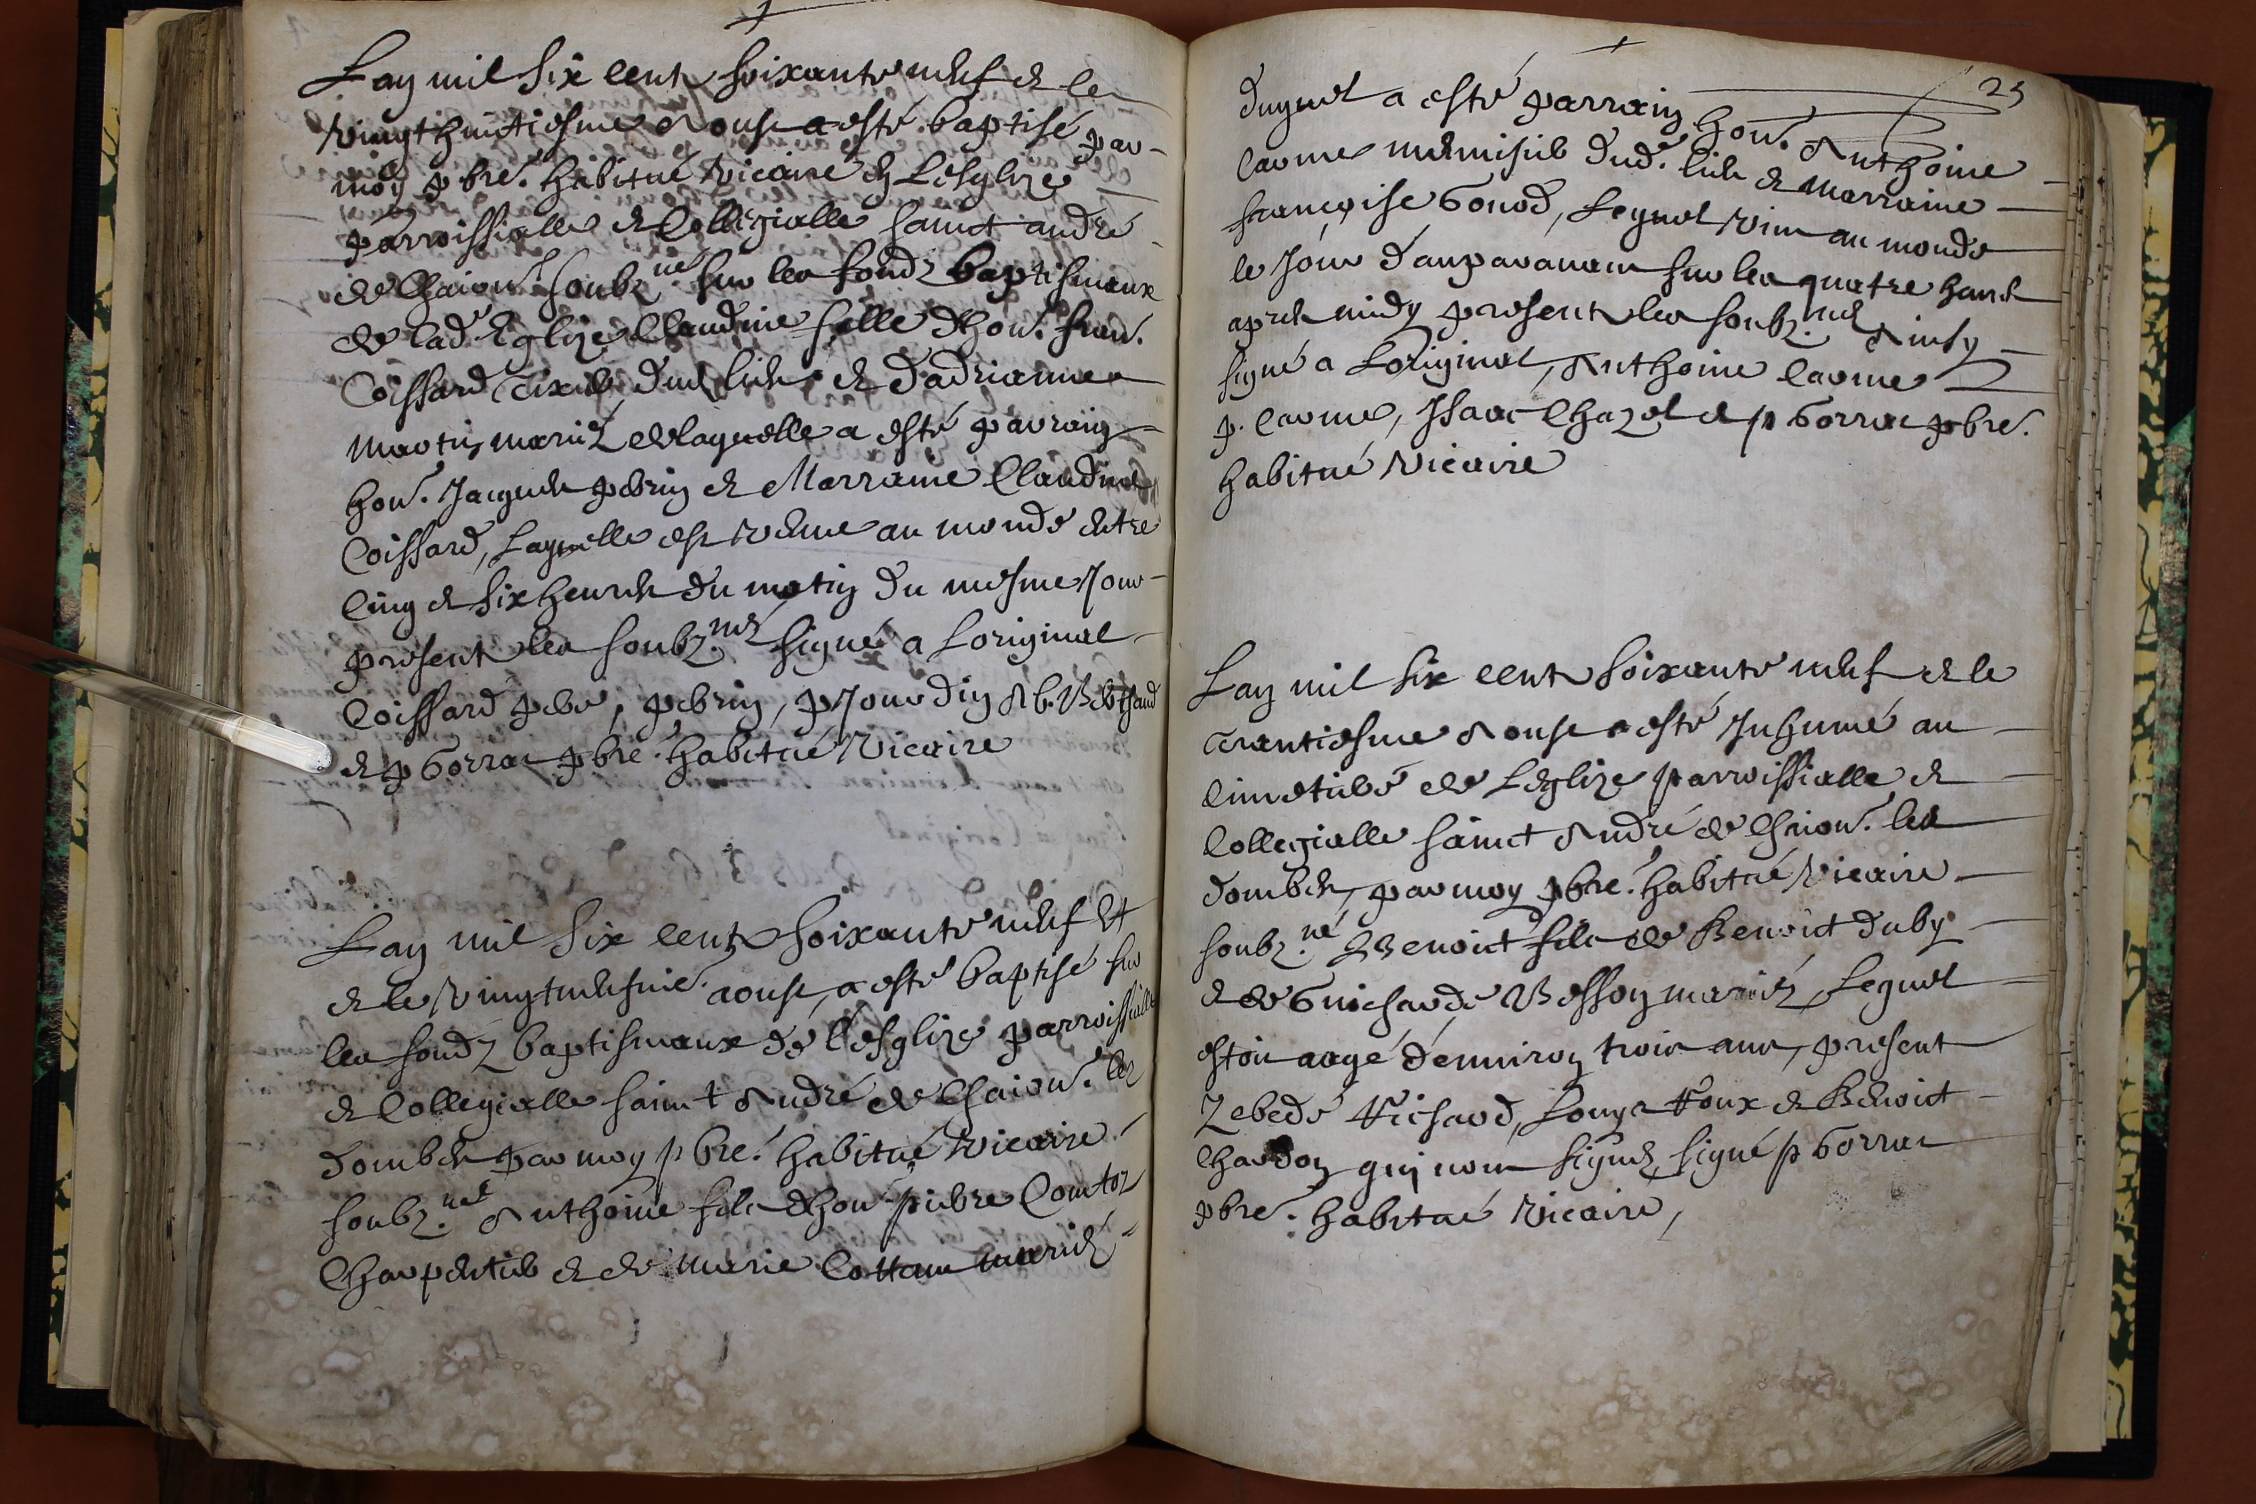 Lan mil six cent soixante neuf & le
vingthuictiesme Aoust a esté baptisé par
moy pbre. habitué vicaire en Lesglize
parroissialle & Collegialle sainct andré
de Chaion. soubz.né sur les fondz baptismaux
de lad. Eglize Claudine fille dhon. fran.
Coissard tixier dud. lieu & dadrianne
Martin mariéz de laquelle a esté parrain
hon. Jacques pebrin & Marraine Claudine
Coissard, Laquelle est venue au monde entre
cinq & six heures du matin du mesme Jour
present les soubz.nés signé a Loriginal
Coissard pere, pebrin, p Jourdin & b. Berthaud
& p Gorrat pbre. habitué Vicaire
Lan mil six centz soixante neuf Et
& le vingtneufiesme aoust, a esté baptisé sur
les fondz baptismaux de l'esglize parroissialle
& Collegialle sainct Andre de Chaion. les
dombes par moy pbre. habitué Vicaire
soubz.né Anthoine fils dhon. pierre Comtoz
Charpentier & de Marie Cottain mariés
25
duquel a esté parrain hon. Anthoine
Carme meunisier dud. lieu & Marraine
françoise Gonod, Lequel vin au monde
le Jour d'auparavant sur les quatre heures
apres midy present les soubz.nés Ainsy
signé a Loriginal, Anthoine Carme
p. Carme, Isaac Chazel & p Gorrat pbre.
habitué Vicaire
Lan mil six cent soixante neuf & le
trantiesme Aoust a esté Inhumé au
Cimetiere de Leglize parroissialle &
Collegialle sainct Andre de Chaion. les
dombes, par moy pbre. habitué Vicaire
soubz.né Benoict fils de Benoict duby
& de Guicharde Besson mariés, Lequel
estoit aagé d'environ trois ans, present
Zebedé Richard, Louys Roux & Benoict
Chardon qui nont signés, signé p Gorrat
pbre. habitué Vicaire,